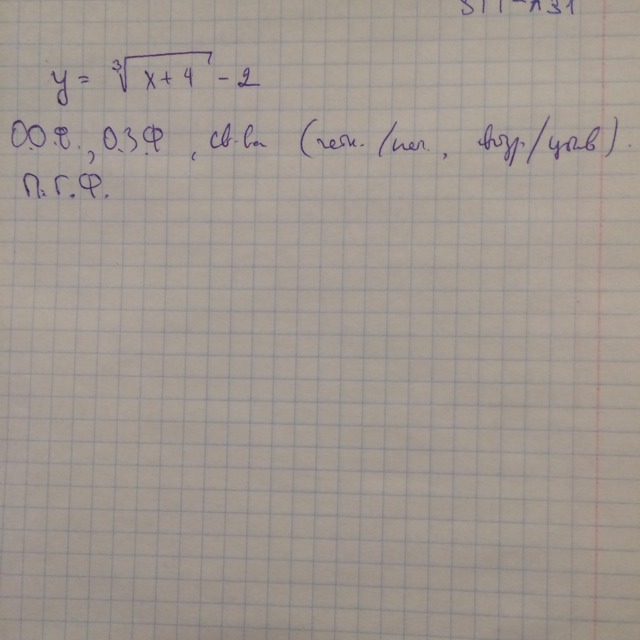 y = ∛(x+4) - 2
ООФ., ОЗФ, св-ва (чет./неч., возр./убыв).
П.Г.Ф.